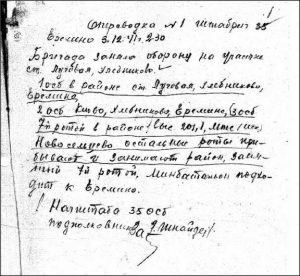 Оперсводка №1 штабриг 35
Еремино 3.12.41г. 2.30
Бригада заняла оборону на участке
ст. Луговая, Хлебниково.
1 осб в районе ст. Луговая, Хлебниково,
Еремино,
2 осб Хлебниково, Еремино, 3 осб
7й ротой в районе (выс 201,1,
Новосельцево остальные роты при
бывают и занимают район, заня
тый 7й ротой, Минбатальон подхо
дит к Еремино.
Начштаба 35 осб
подполковник Шнайдер